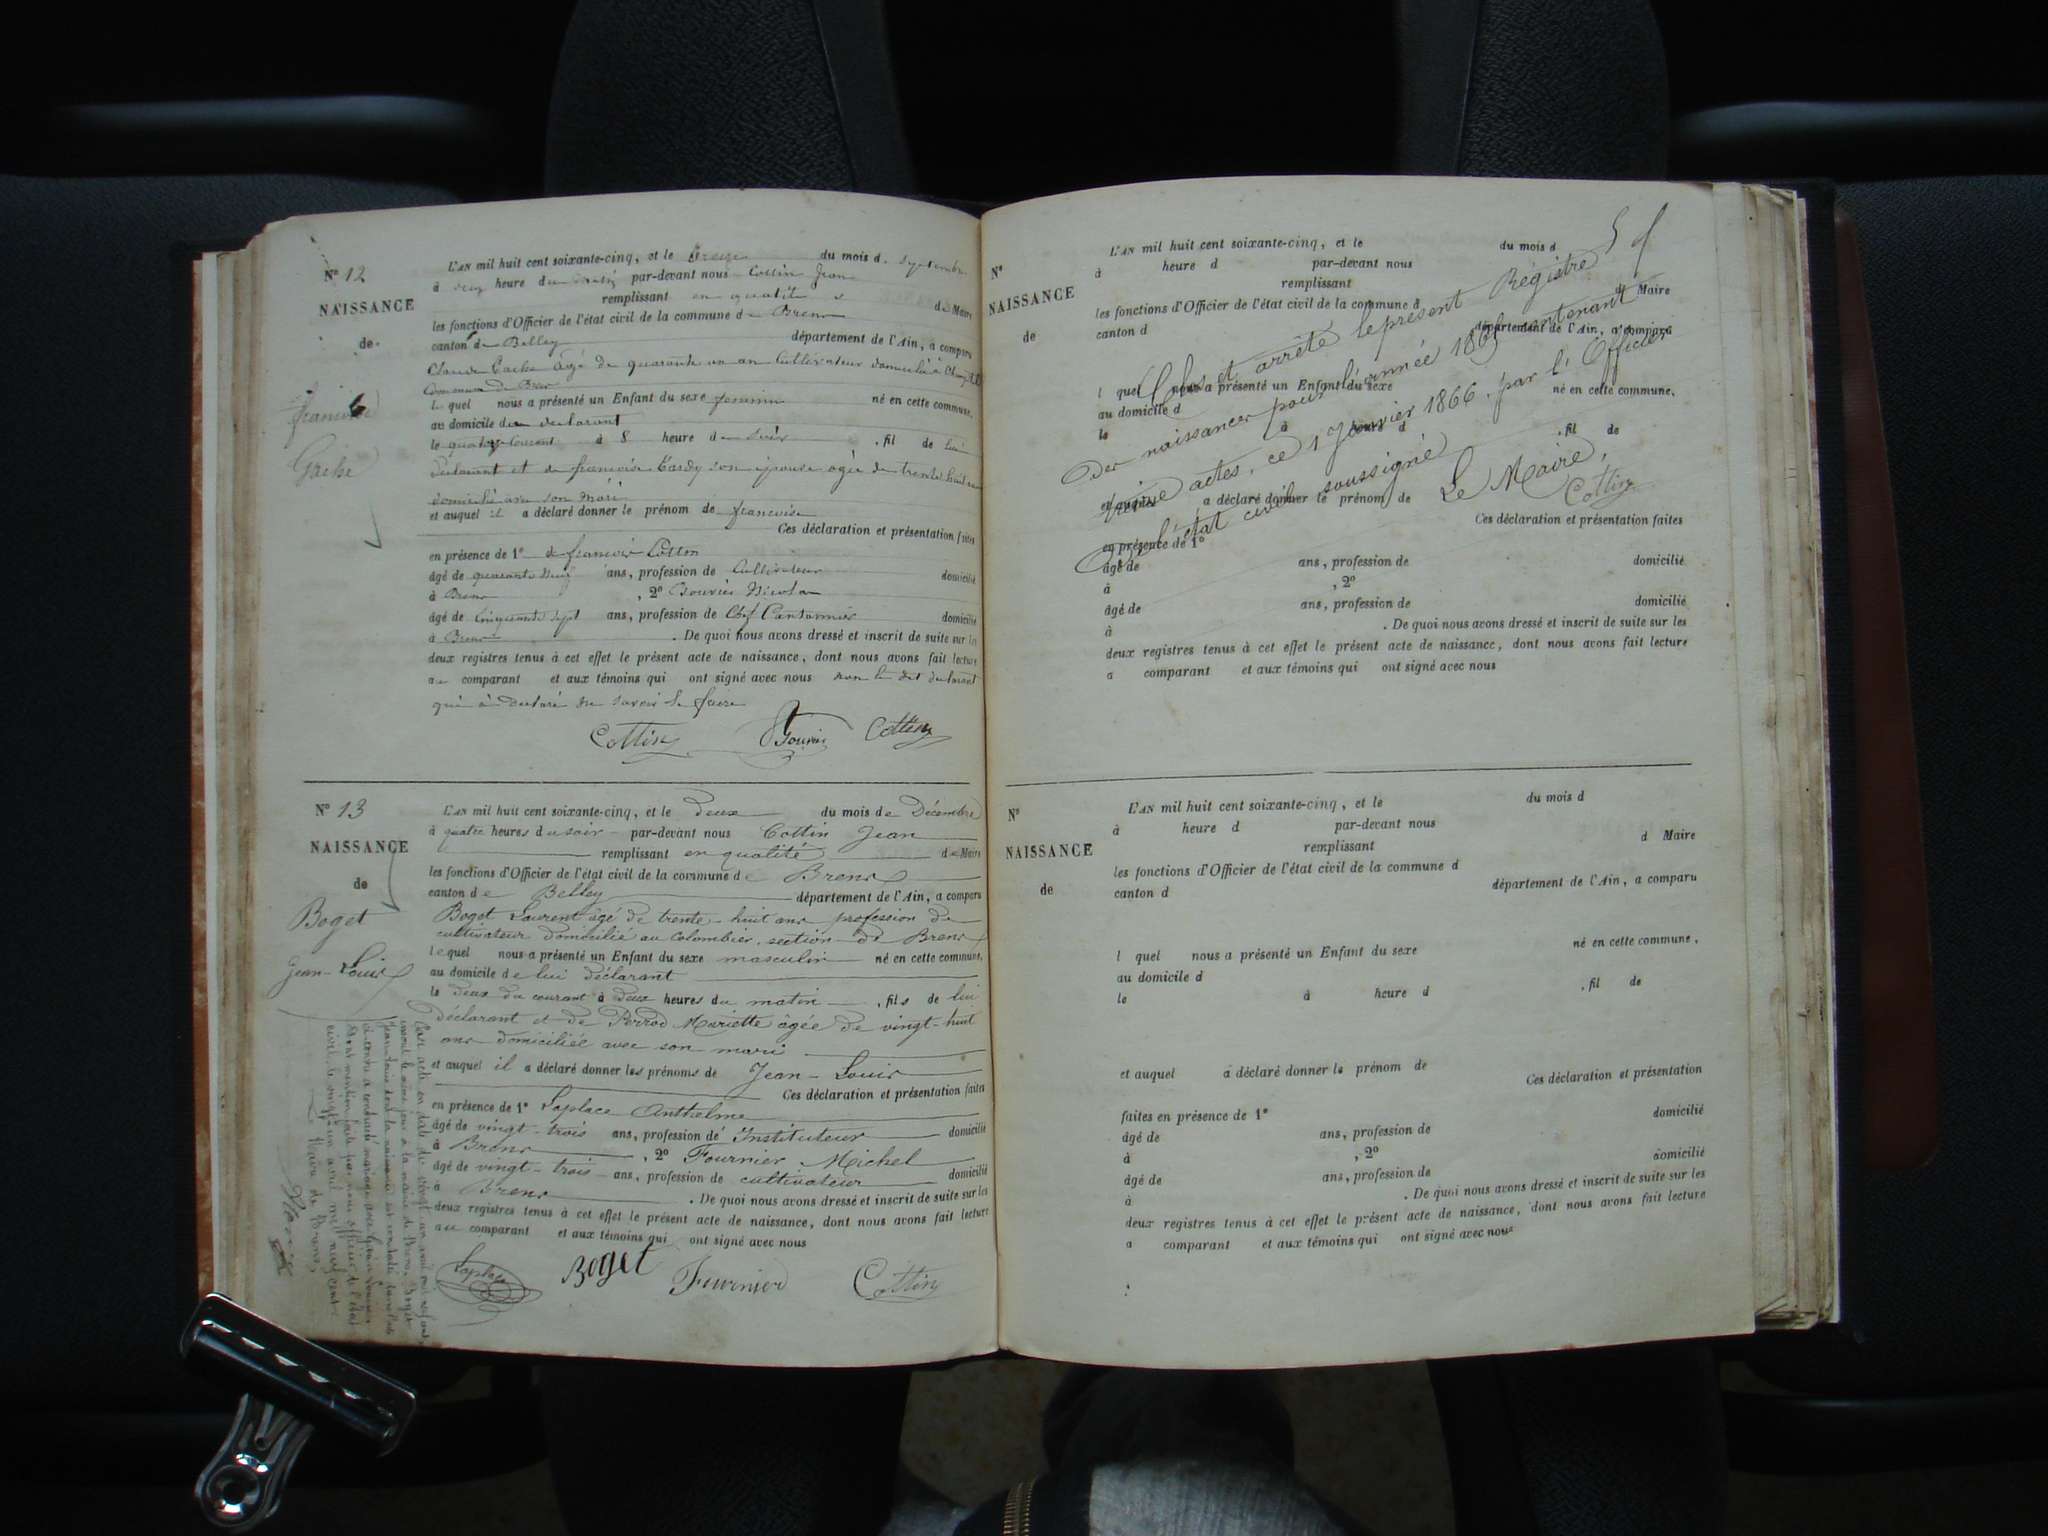 N° 12
NAISSANCE
de
françoise
Gache
L'AN mil huit cent soixante-cinq, et le du mois d. Septembre
à heure du par-devant nous Cottin Jean
remplissant en qualité de Maire
les fonctions d'Officier de l'état civil de la commune de Brens
canton de Belley département de l'Ain, a comparu
Claude Gache âgé de quarante un an Cultivateur domicilié à
Commune de Brens
le quel nous a présenté un Enfant du sexe feminin né en cette commune,
au domicile du declarant
le courant à 8 heure du soir , fil de lui
declarant et de françoise Tardy son épouse agée de trente huit ans
domicilié avec son mari
et auquel il a déclaré donner le prénom de françoise
Ces déclaration et présentation faites
en présence de 1° de françois Cottin
âgé de quarante neuf ans, profession de Cultivateur domicilié
à Brens , 2° Bouvier Nicolas
âgé de Cinquante sept ans, profession de Chef Cantonnier domicilié
à Brens . De quoi nous avons dressé et inscrit de suite sur les
deux registres tenus à cet effet le présent acte de naissance, dont nous avons fait lecture
au comparant et aux témoins qui ont signé avec nous non le dit declarant
qui à declaré ne savoir le faire
Cottin Bouvier Cottin
N° 13
NAISSANCE
de
Boget
Jean-Louis
L'AN mil huit cent soixante-cinq, et le deux du mois de Décembre
à quatre heures du soir par-devant nous Cottin Jean
remplissant en qualité de Maire
les fonctions d'Officier de l'état civil de la commune de Brens
canton de Belley département de l'Ain, a comparu
Boget Laurent âgé de trente-huit ans profession de
cultivateur domicilié au Colombier, section de Brens
lequel nous a présenté un Enfant du sexe masculin né en cette commune,
au domicile de lui déclarant
le deux du courant à deux heures du matin , fils de lui
déclarant et de Perrod Mariette âgée de vingt-huit
ans domiciliée avec son mari
et auquel il a déclaré donner les prénoms de Jean-Louis
Ces déclaration et présentation faites
en présence de 1° Laplace Anthelme
âgé de vingt-trois ans, profession de Instituteur domicilié
à Brens , 2° Fournier Michel
âgé de vingt-trois ans, profession de cultivateur domicilié
à Brens . De quoi nous avons dressé et inscrit de suite sur les
deux registres tenus à cet effet le présent acte de naissance, dont nous avons fait lecture
au comparant et aux témoins qui ont signé avec nous
Laplace Boget Fournier Cottin
acte en date du vingt un avril mil neuf cent
le même jour à la mairie de Brens, Boget
Jean-Louis dont la naissance est constatée dans l'acte
ci-contre a contracté mariage avec
Dont mention faite par nous officier de l'état
civil le vingt un avril mil neuf cent
Le Maire de Brens,
N°
NAISSANCE
de
L'AN mil huit cent soixante-cinq, et le du mois d
à heure d par-devant nous
remplissant d Maire
les fonctions d'Officier de l'état civil de la commune d
canton d département de l'Ain, a comparu
l quel nous a présenté un Enfant du sexe né en cette commune,
au domicile d
le à heure d , fil de
et auquel a déclaré donner le prénom de
Ces déclaration et présentation faites
en présence de 1°
âgé de ans, profession de domicilié
à , 2°
âgé de ans, profession de domicilié
à . De quoi nous avons dressé et inscrit de suite sur les
deux registres tenus à cet effet le présent acte de naissance, dont nous avons fait lecture
a comparant et aux témoins qui ont signé avec nous
Clos et arrêté le présent Registre
Des naissances pour l'année 1865 contenant
treize actes, ce 1 Janvier 1866, par l'Officier
De l'état civil soussigné
Le Maire,
Cottin
N°
NAISSANCE
de
L'AN mil huit cent soixante-cinq, et le du mois d
à heure d par-devant nous
remplissant d Maire
les fonctions d'Officier de l'état civil de la commune d
canton d département de l'Ain, a comparu
l quel nous a présenté un Enfant du sexe né en cette commune,
au domicile d
le à heure d , fil de
et auquel a déclaré donner le prénom de
Ces déclaration et présentation
faites en présence de 1° domicilié
âgé de ans, profession de
à , 2° domicilié
âgé de ans, profession de
à . De quoi nous avons dressé et inscrit de suite sur les
deux registres tenus à cet effet le présent acte de naissance, dont nous avons fait lecture
a comparant et aux témoins qui ont signé avec nous